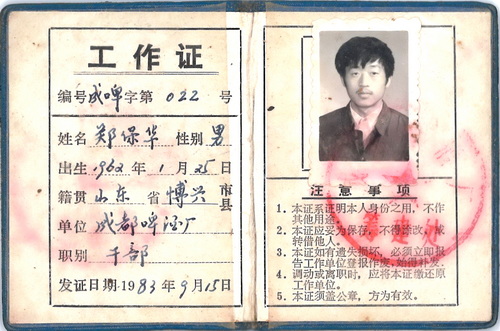 工作证
编号成啤字第 022 号
姓名 郑保华 性别 男
出生 1962 年 1 月 25 日
籍贯 山东 省 博兴 市县
单位 成都啤酒厂
职别 干部
发证日期 1983 年 9 月 15 日
注意事项
1. 本证系证明本人身份之用，不作
其他用途。
2. 本证应妥为保存，不得涂改，或
转借他人。
3. 本证如有遗失损坏，必须立即报
告工作单位登报作废，始得补发。
4. 调动或离职时，应将本证缴还原
工作单位。
5. 本证须盖公章，方为有效。